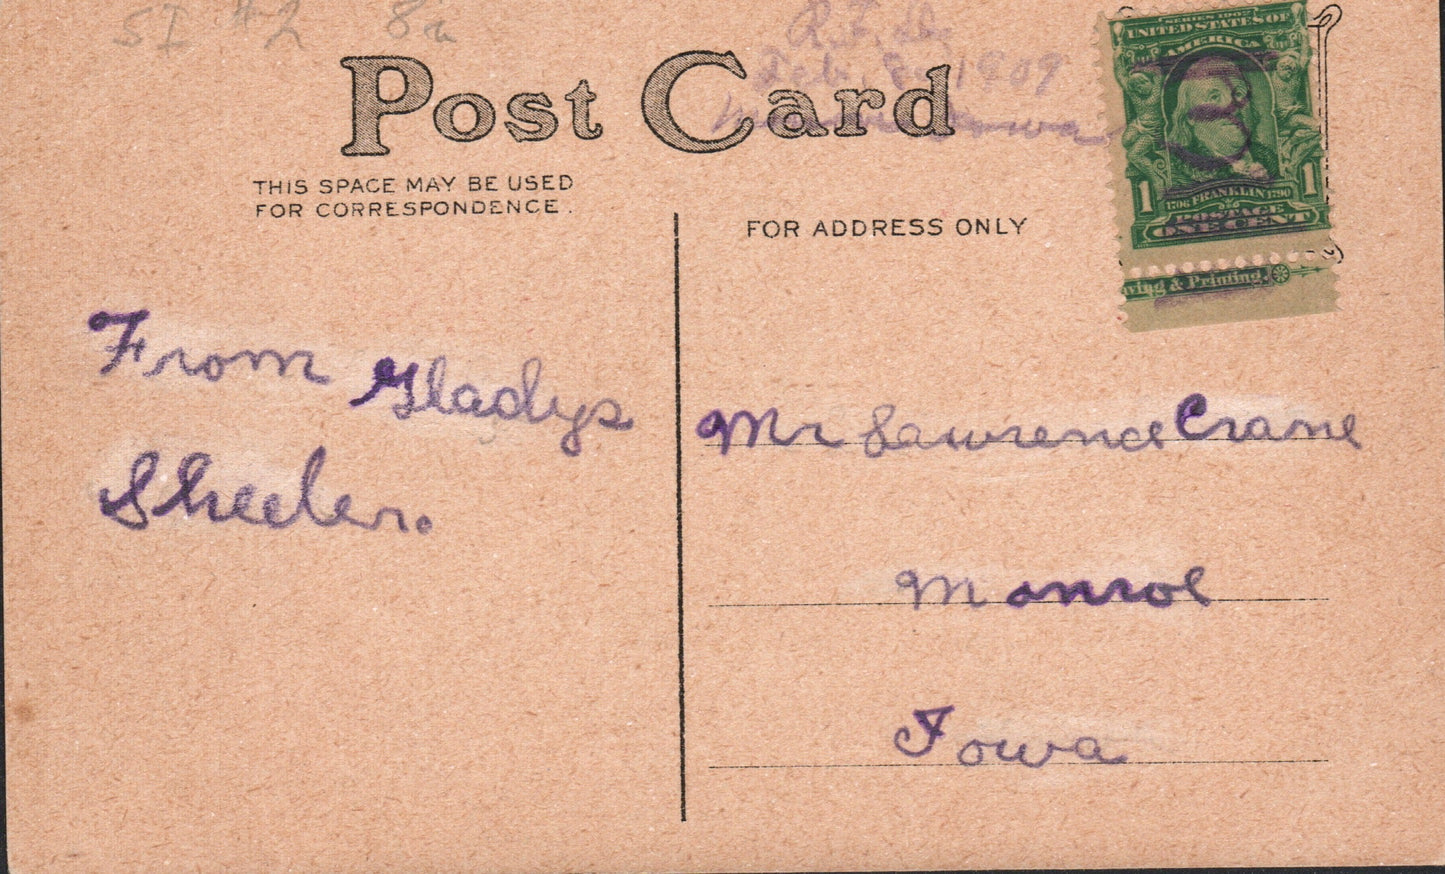 SI #2 8a
R.F.D.
Feb. 1909
Iowa
POST CARD
THIS SPACE MAY BE USED
FOR CORRESPONDENCE.
FOR ADDRESS ONLY
SERIES 1902
UNITED STATES OF
AMERICA
1 1706 FRANKLIN 1790 1
POSTAGE
ONE CENT
ving & Printing.
From Gladys
Sheeler.
Mr Lawrence Crane
Monroe
Iowa